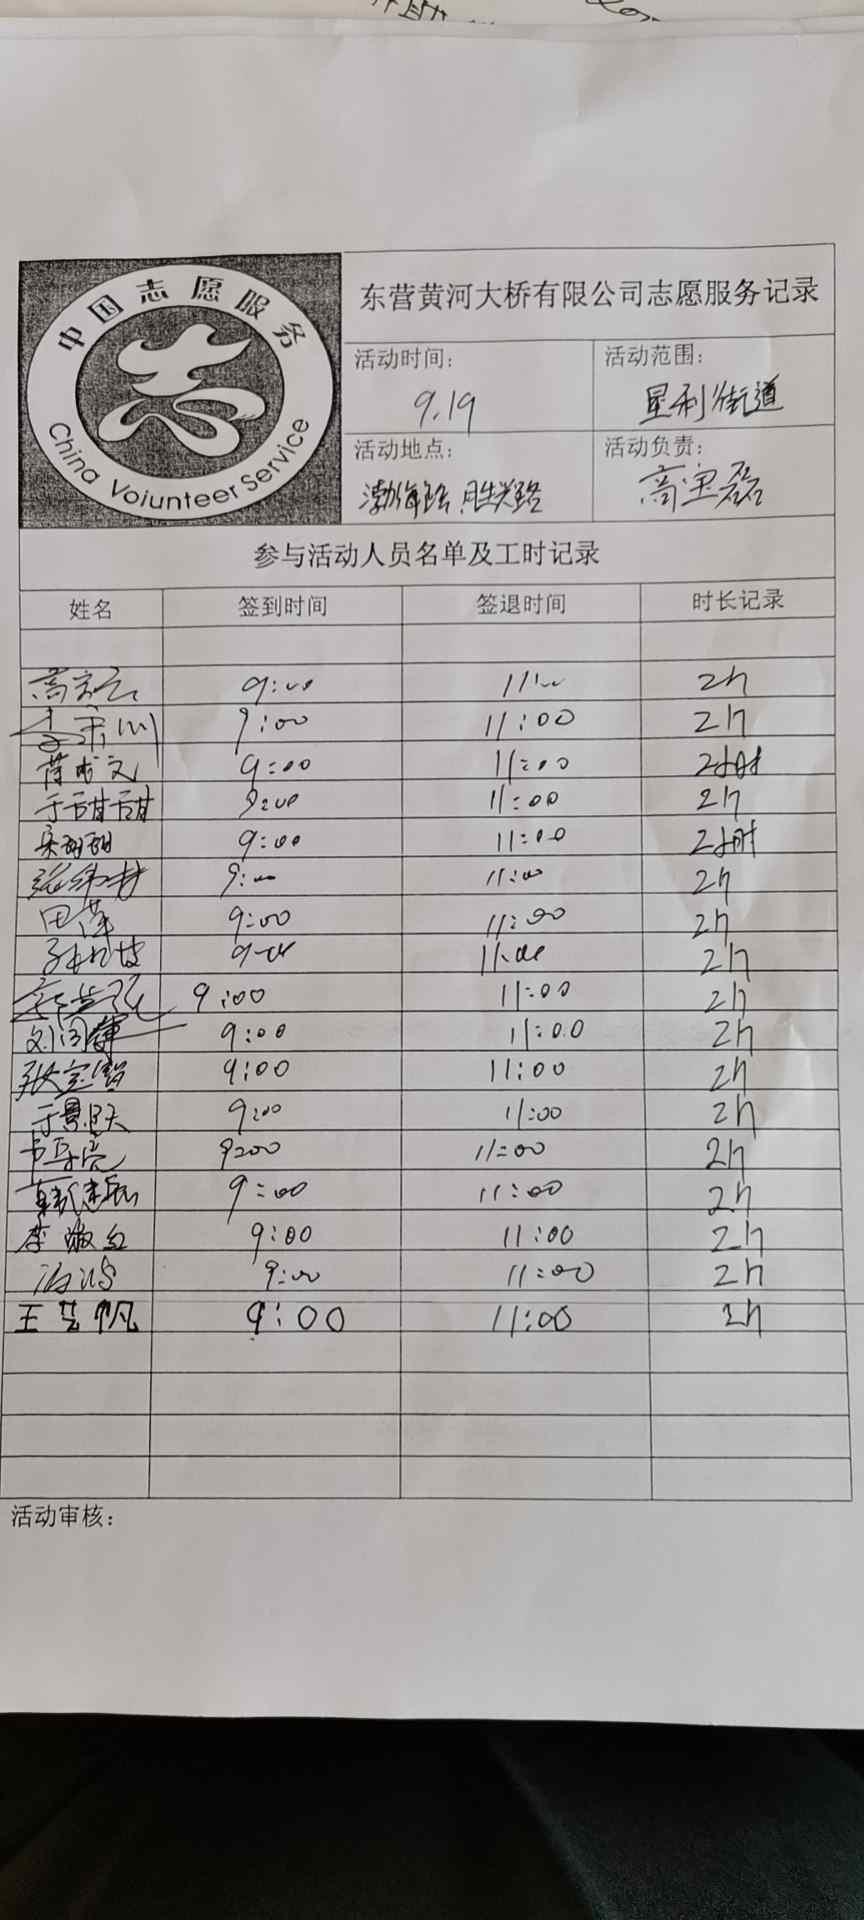 中国志愿服务
China Voiunteer Service
东营黄河大桥有限公司志愿服务记录
活动时间：
9.19
活动范围：
垦利街道
活动地点：
渤海路 胜兴路
活动负责：
高宝磊
参与活动人员名单及工时记录
姓名 签到时间 签退时间 时长记录
9:00 11:00 2h
9:00 11:00 2h
9:00 11:00 2小时
于甜甜 9:00 11:00 2h
9:00 11:00 2小时
9:00 11:00 2h
田萍 9:00 11:00 2h
9:00 11:00 2h
9:00 11:00 2h
9:00 11:00 2h
张宝智 9:00 11:00 2h
9:00 11:00 2h
9:00 11:00 2h
9:00 11:00 2h
李淑红 9:00 11:00 2h
9:00 11:00 2h
王艺帆 9:00 11:00 2h
活动审核：